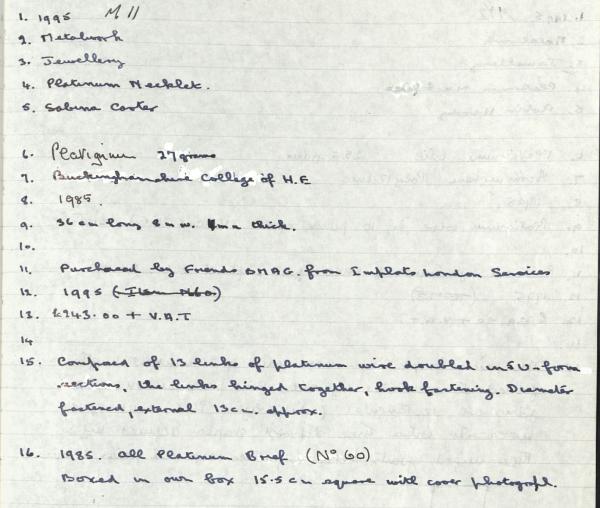 1. 1995 M11
2. Metalwork
3. Jewellery
4. Platinum Necklet.
5. Sabina Coster
6. Platinum 27 grams
7. Buckinghamshire College of H.E
8. 1985.
9. 36 cm long 8 m w. 1mm thick.
10.
11. Purchased by Friends BMAG. from Implats London Services
12. 1995 (Item No60)
13. £243.00 + V.A.T
14
15. Composed of 13 links of platinum wire doubled into U-form
sections, the links hinged together, hook fastening. Diameter
fastened, external 13cm. approx.
16. 1985. all Platinum Brief (No 60)
Boxed in own box 15.5 cm square with cover photograph.